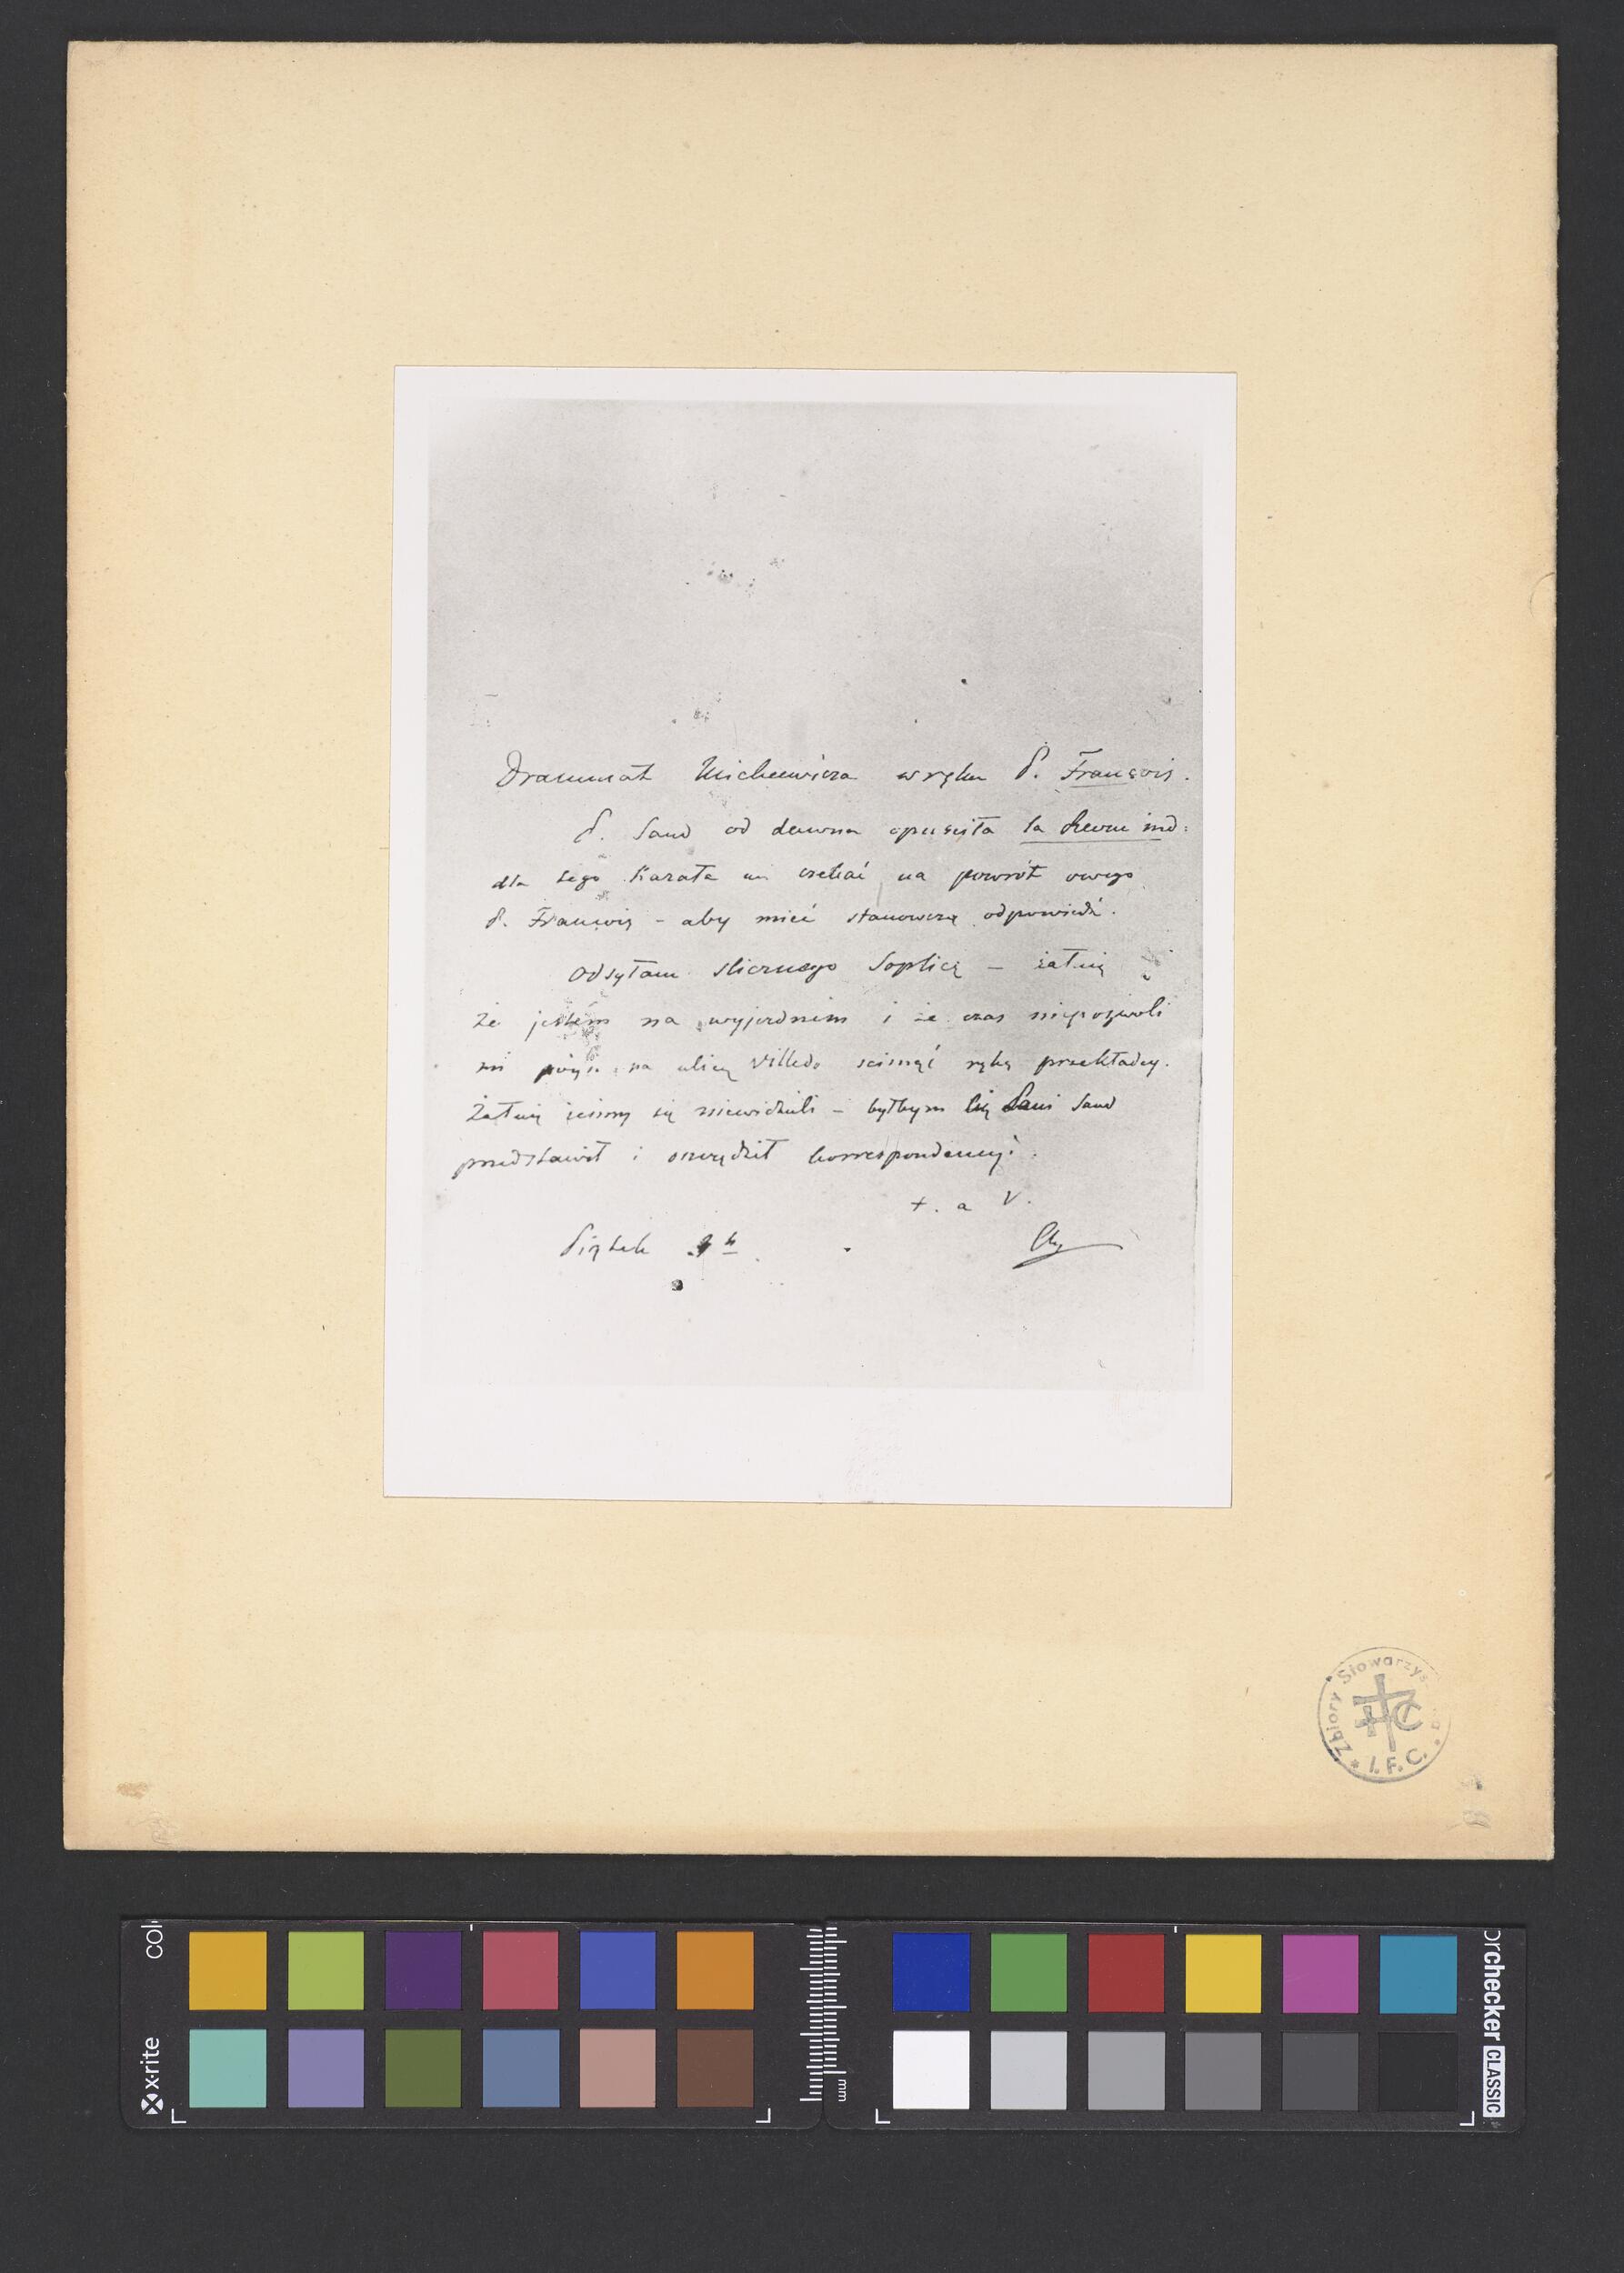 Drammat Mickiewicza w ręku P. François.
P. Sand od dawna opusciła la Revue ind:
dla tego kazała mi czekać na powrót owego
P. François – aby mieć stanowczą odpowiedź.
Odsyłam slicznego Soplicę – żałuię
że jestem na wyjezdnem i że czas niepozwoli
mi pójść na ulicę Villedo scisnąć rękę przekładcy.
Żałuię żeśmy się niewidzieli – byłbym Cię Pani Sand
przedstawił i oszczędził korrespondencyi.
t. a V.
Piątek
Ch
Zbiory Stowarzyszenia
* I. F. C. *
x·rite
colorchecker CLASSIC
mm